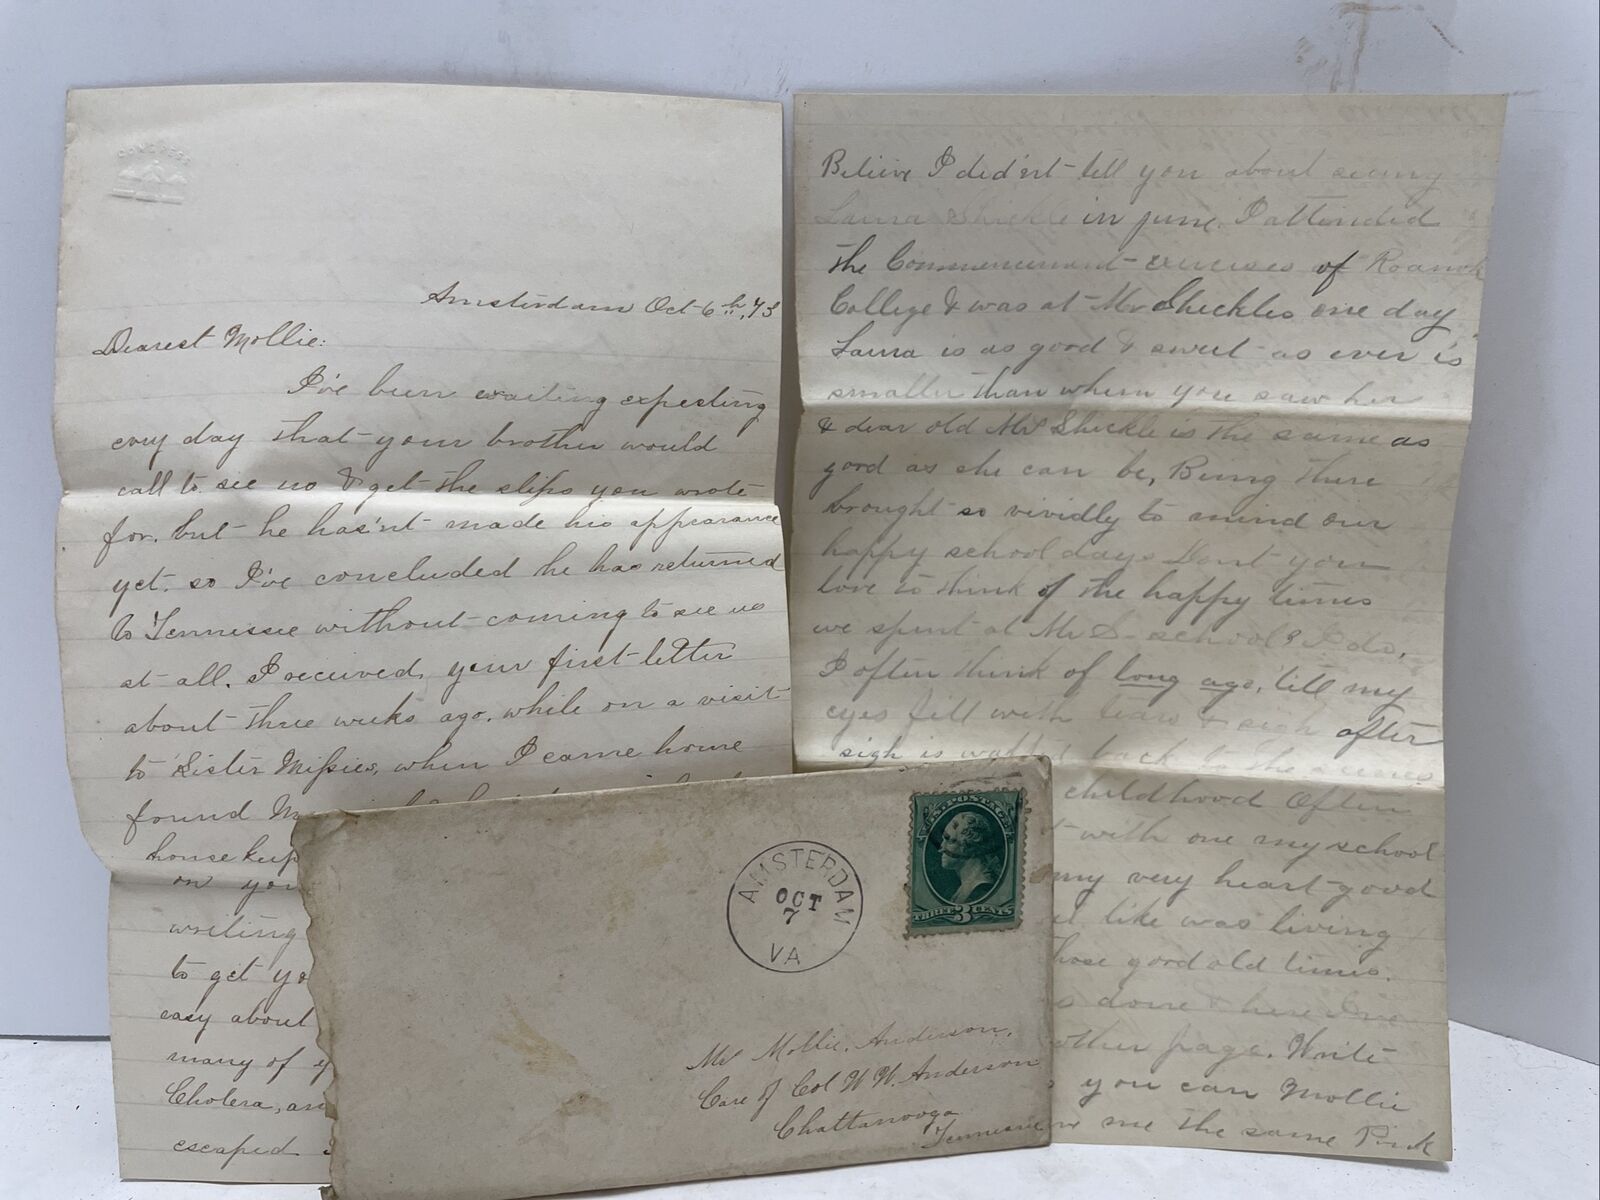 CONGRESS
Amsterdam Oct 6th, 73
Dearest Mollie:
I've been waiting expecting
every day that your brother would
call to see us & get the slips you wrote
for, but he has'nt made his appearance
yet. so I've concluded he has returned
to Tennessee without coming to see us
at all. I received your first letter
about three weeks ago. while on a visit
to Sister Missies, when I came home
found
house keep
on you
writing
to get yo
easy about
many of y
Cholera, an
escaped
Believe I did'nt tell you about seeing
Laura Shickle in June. I attended
the Commencement exercises of Roanok
College & was at Mr Shickles one day
Laura is as good & sweet as ever is
smaller than when you saw her
& dear old Mrs Shickle is the same as
good as she can be, Being there
brought so vividly to mind our
happy school days Dont you
love to think of the happy times
we spent at Mr S- school? I do,
I often think of long ago, till my
eyes fill with tears & sigh after
sigh is wafted back to the scenes
childhood Often
with one my school
my very heart good
like was living
those good old times.
done & here I've
other page. Write
you can Mollie
me the same Pink
U.S. POSTAGE
THREE 3 CENTS
AMSTERDAM
OCT
7
VA
Mrs Mollie. Anderson,
Care of Col W. W. Anderson
Chattanooga
Tennessee